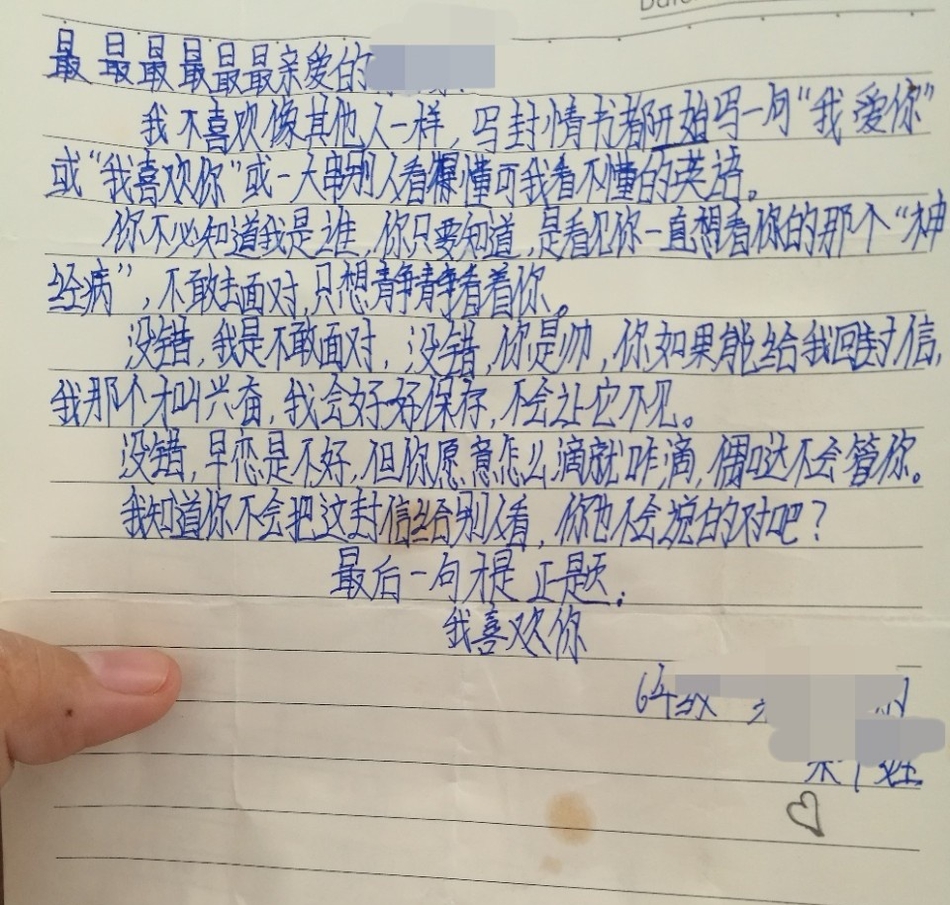 最最最最最最亲爱的
我不喜欢像其他人一样，写封情书都开始写一句“我爱你”
或“我喜欢你”或一大串别人看得懂可我看不懂的英语。
你不必知道我是谁，你只要知道，是看见你一直想看你的那个“神
经病”，不敢去面对，只想静静看着你。
没错，我是不敢面对，没错，你是帅，你如果能给我回封信，
我那个才叫兴奋，我会好好保存，不会让它不见。
没错，早恋是不好，但你愿意怎么滴就咋滴，偶哒不会管你。
我知道你不会把这封信给别人看，你也不会说的对吧？
最后一句才是正题：
我喜欢你
6年级